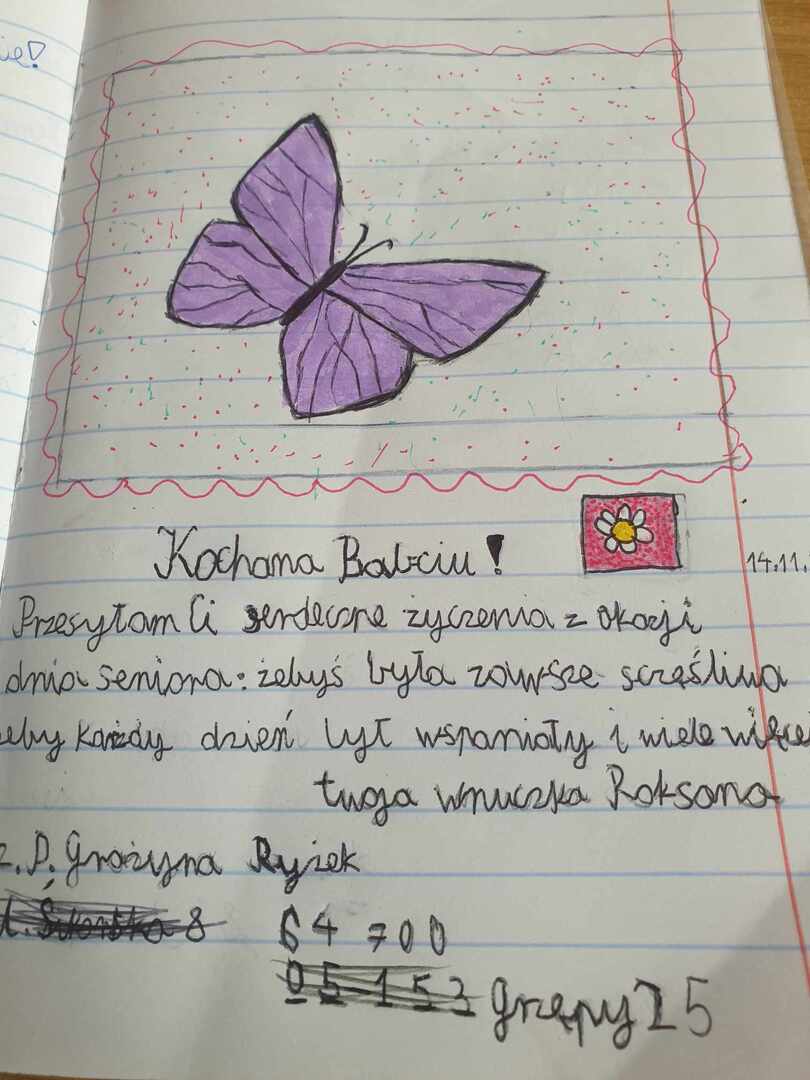 ię!
Kochana Babciu!
14.11.
Przesyłam Ci serdeczne życzenia z okazji
dnia seniora: żebyś była zawsze scręśliwa
eby każdy dzień był wspaniały i wiele więce
twoja wnuczka Roksana
z. P. Grażyna Ryżek
8 64 700
05-153 grzępy 25